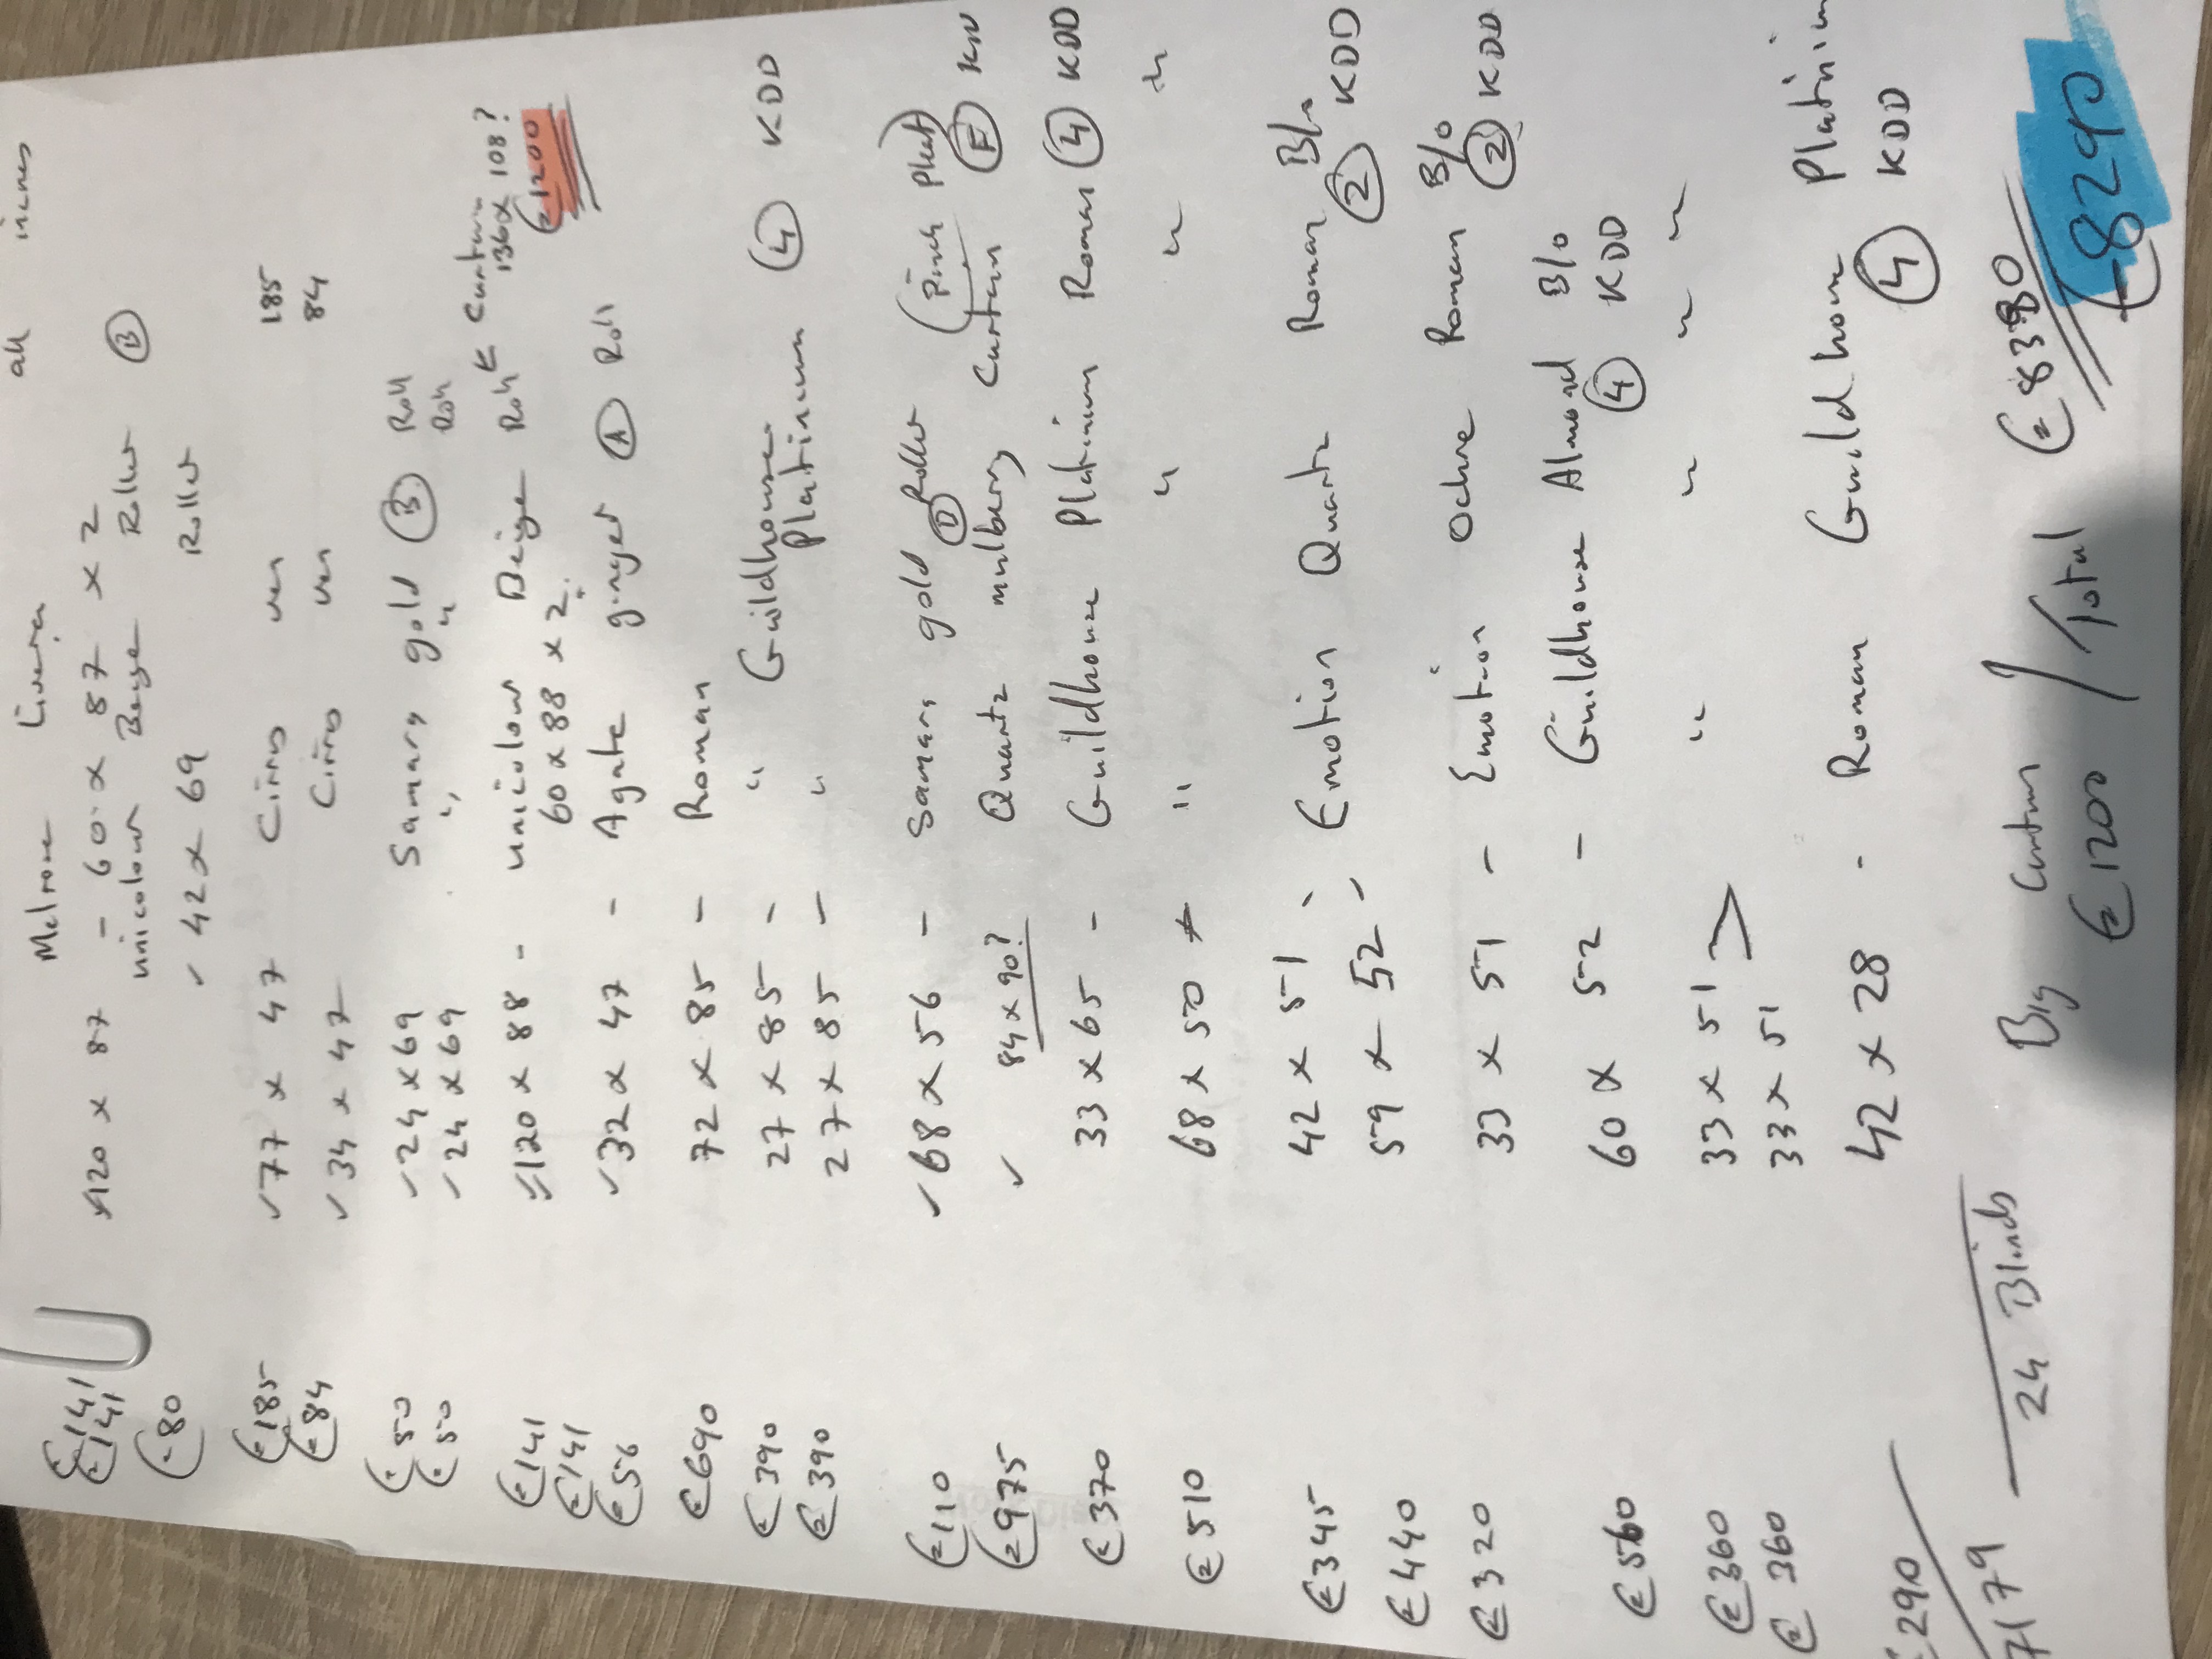 Melrose Liverien all inches
€141 120 x 87 - 60 x 87 x 2
€141 unicolour Beige Roller (B)
€80 ✓ 42 x 69 Roller
€185 ✓ 77 x 47 Cirros ven 185
€84 ✓ 34 x 47 Cirros ven 84
€50 ✓ 24 x 69 Samary gold (B) Roll
€50 ✓ 24 x 69 " " Roll
€141 120 x 88 - unicolour Beige Roll
€141 60 x 88 x 2
& Curtain 136 x 108?
€1200
€56 ✓ 32 x 47 - Agate ginger (A) Roll
€690 72 x 85 - Roman
€390 27 x 85 - " Guildhouse (4) KDD
€390 27 x 85 - " Platinum
€110 ✓ 68 x 56 - Samary gold (D) Roller
€975 ✓ 84 x 90? Quartz mulberry Curtain (Pinch Pleat) (F) KDD
€370 33 x 65 - Guildhouse Platinium Roman (4) KDD
€510 68 x 50 " " " "
€345 42 x 51 - Emotion Quartz Roman B/o
€440 59 x 52 - (2) KDD
€320 33 x 51 - Emotion Ochre Roman B/o (2) KDD
€560 60 x 52 - Guildhouse Almond B/o (4) KDD
€360 33 x 51 > " " " "
€360 33 x 51
€290 42 x 28 - Roman Guildhouse Platinium (4) KDD
7179 24 Blinds
Big Curtain / Total €8380
€1200 €8290